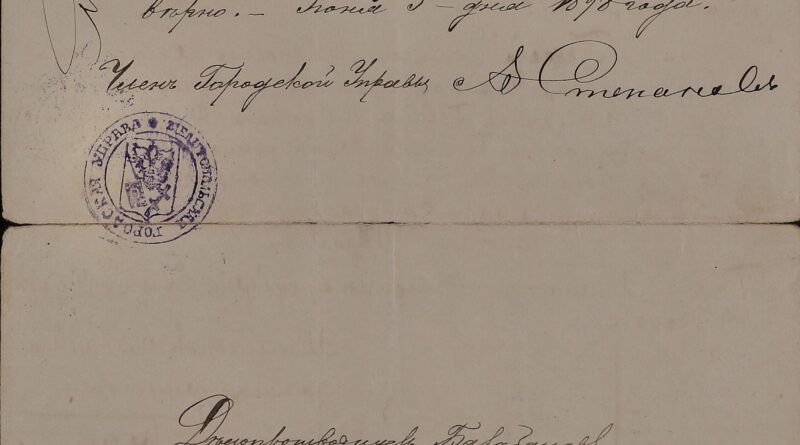 вѣрно. — Іюня 5 — дня 1898 года.
Членъ Городской Управы А Степановъ
МЕЛИТОПОЛЬСКАЯ ГОРОДСКАЯ УПРАВА
Дѣлопроизводитель